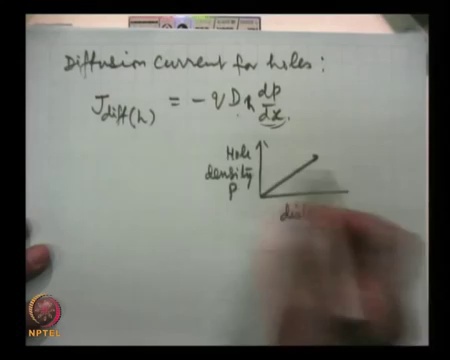 Diffusion Current for holes:
J diff(h) = - q D h dp/dx.
Hole
density
p
NPTEL